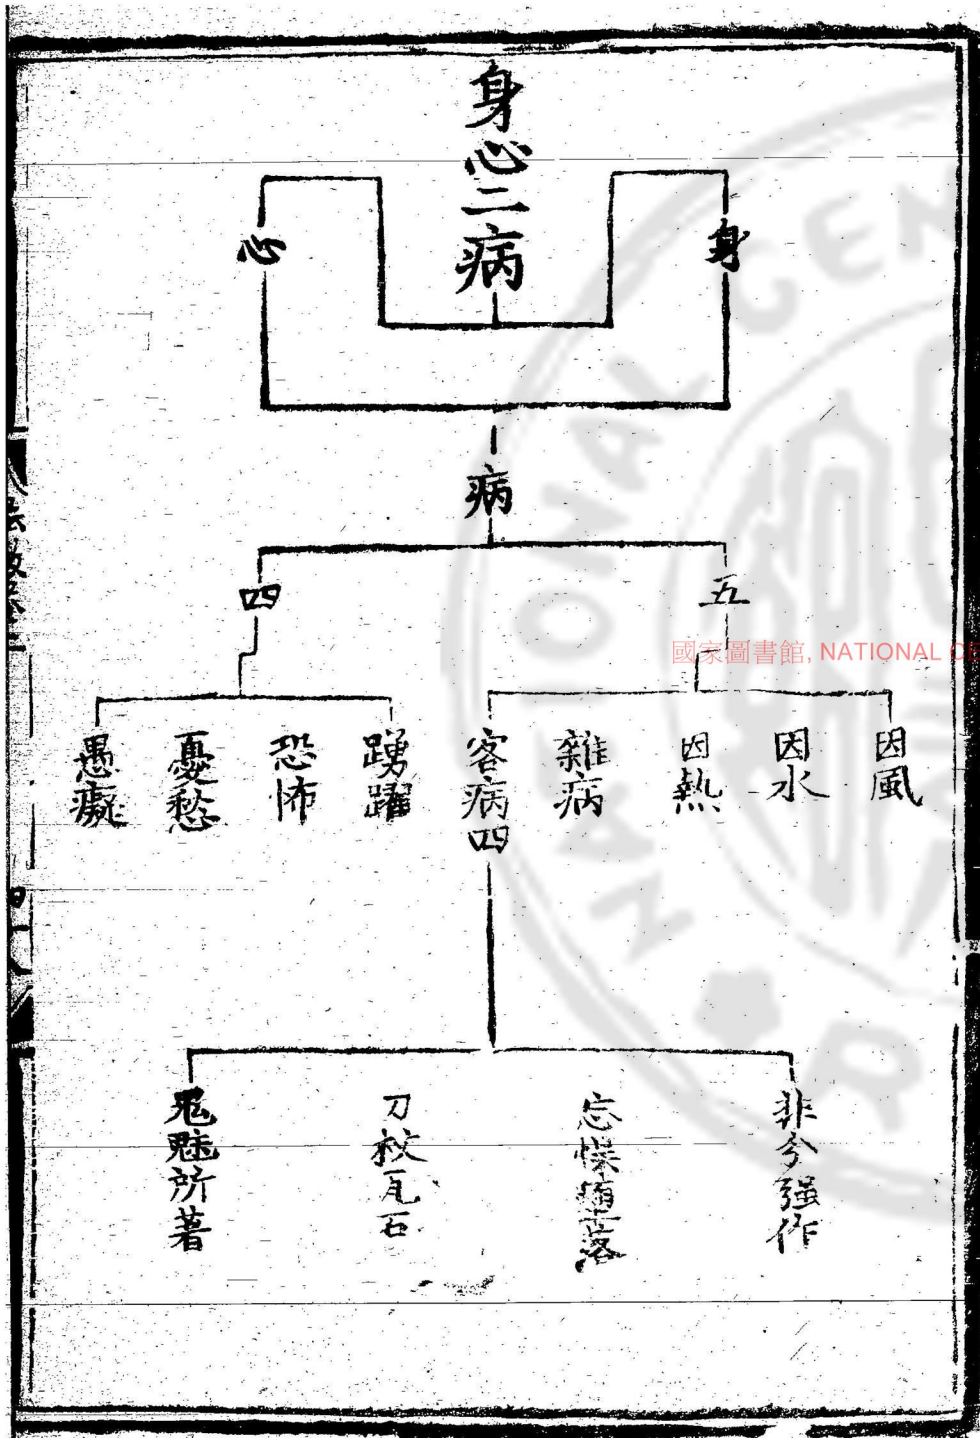 身心二病
身
心
病
五
四
因風
因水
因熱
雜病
客病四
踴躍
恐怖
憂愁
愚癡
非分强作
忘悞墮落
刀杖瓦石
鬼魅所著
國家圖書館, NATIONAL CE
NATIONAL CEN
R